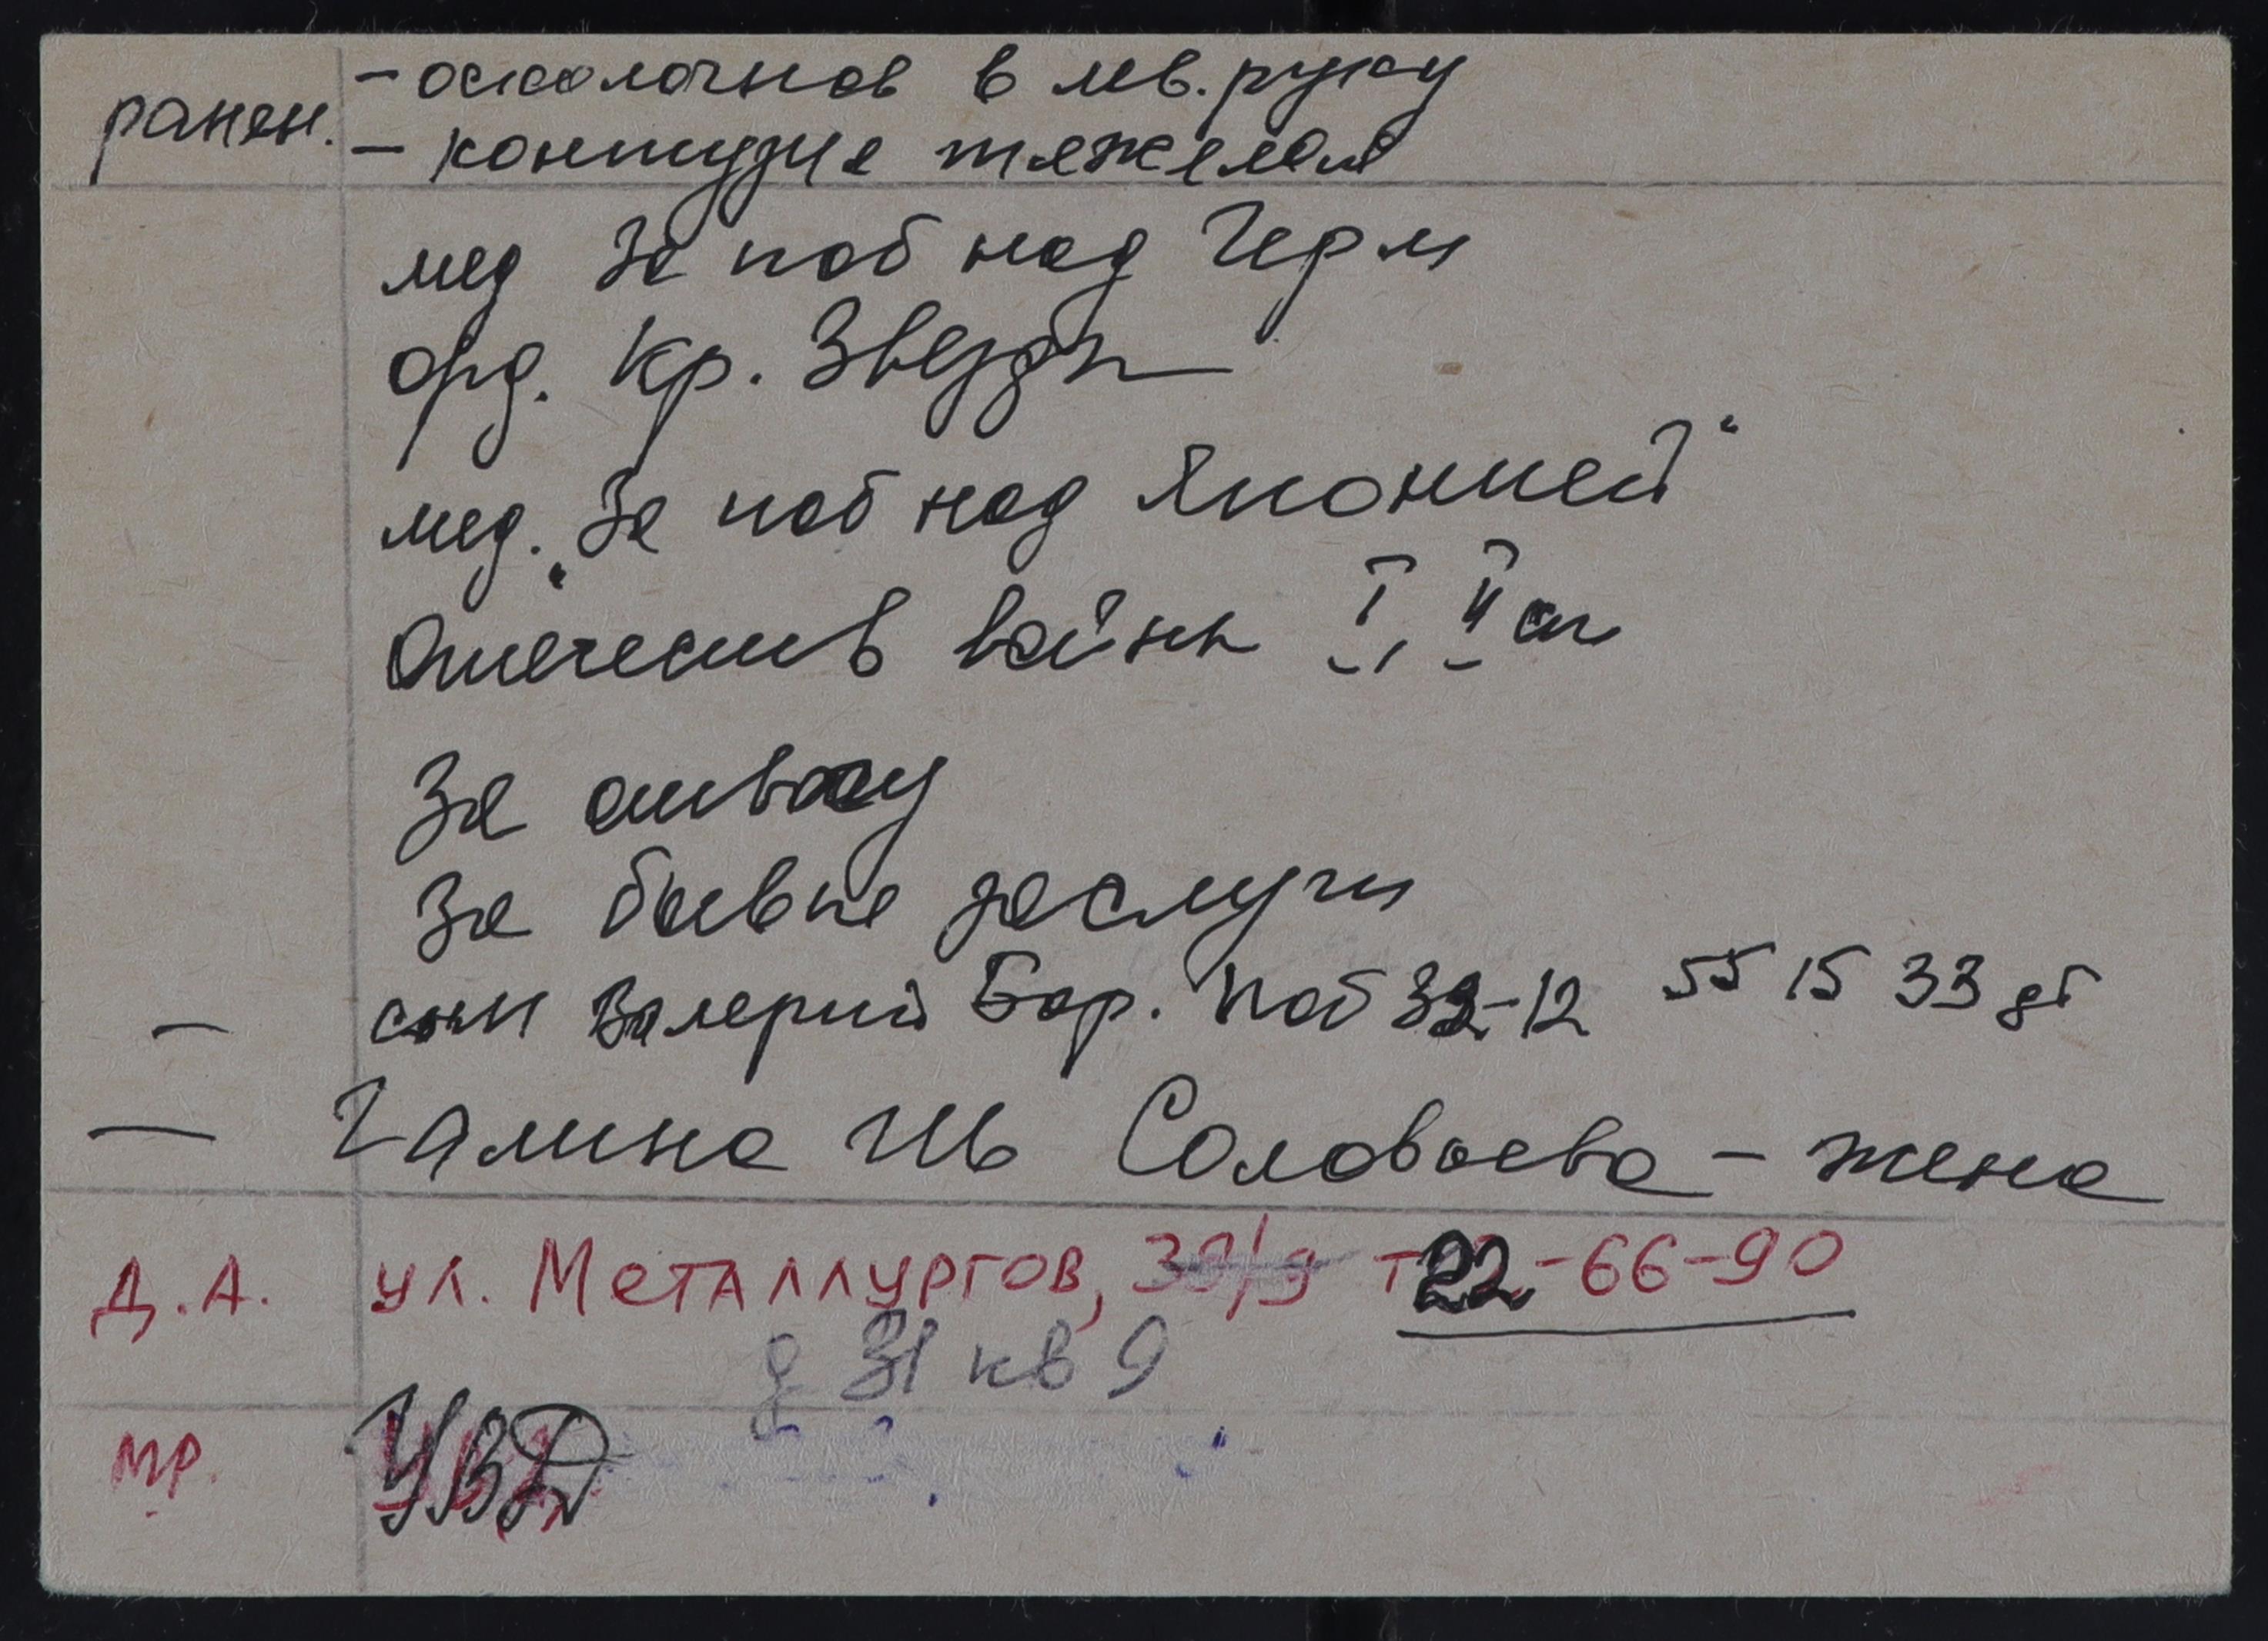 ранен. - осколочное в лев. руку
- контузия тяжелая
мед За поб над Герм
орд. Кр. Звезды
мед. „За поб над Японией“
Отечеств войны I, II ст
За отвагу
За боевые заслуги
— сын Валерий Бор. Поб 32-12 55 15 33 дт
— Галина Соловьева - жена
Д.А. ул. Металлургов, 39/9 т 22-66-90
д 31 кв 9
МР. УВД